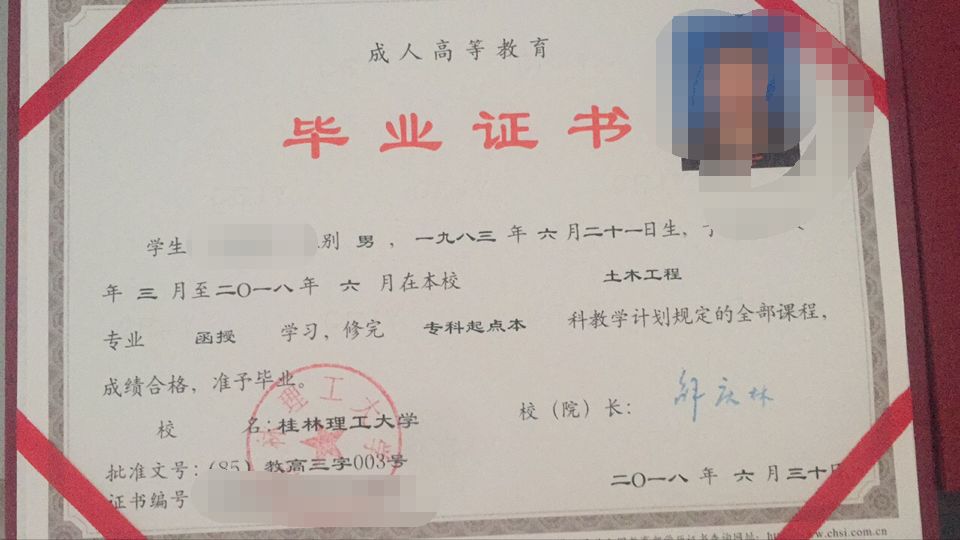 成人高等教育
毕业证书
学生 别 男，一九八三 年 六 月二十一日生，于
年 三 月至二〇一八年 六 月在本校 土木工程
专业 函授 学习，修完 专科起点本 科教学计划规定的全部课程，
成绩合格，准予毕业。
校 名：桂林理工大学 校（院）长：解庆林
批准文号：(85) 教高三字003号
证书编号 二〇一八 年 六 月三十日
www.chsi.com.cn